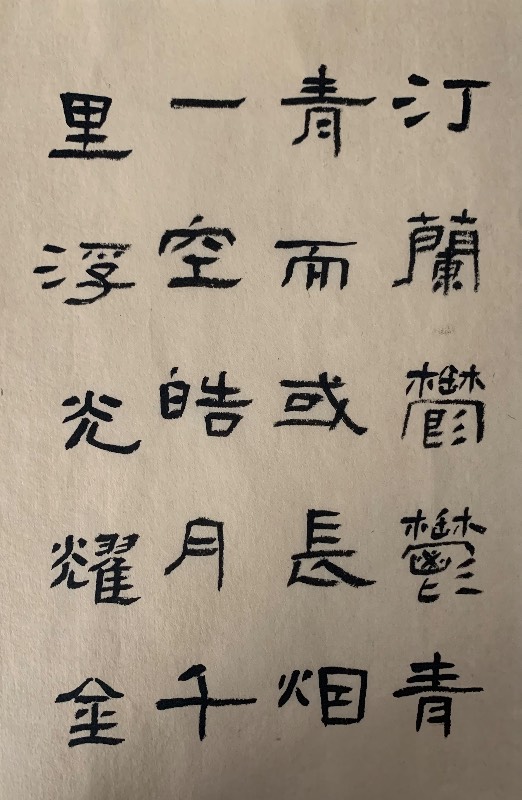 汀蘭鬱鬱青
青而或長烟
一空皓月千
里浮光耀金